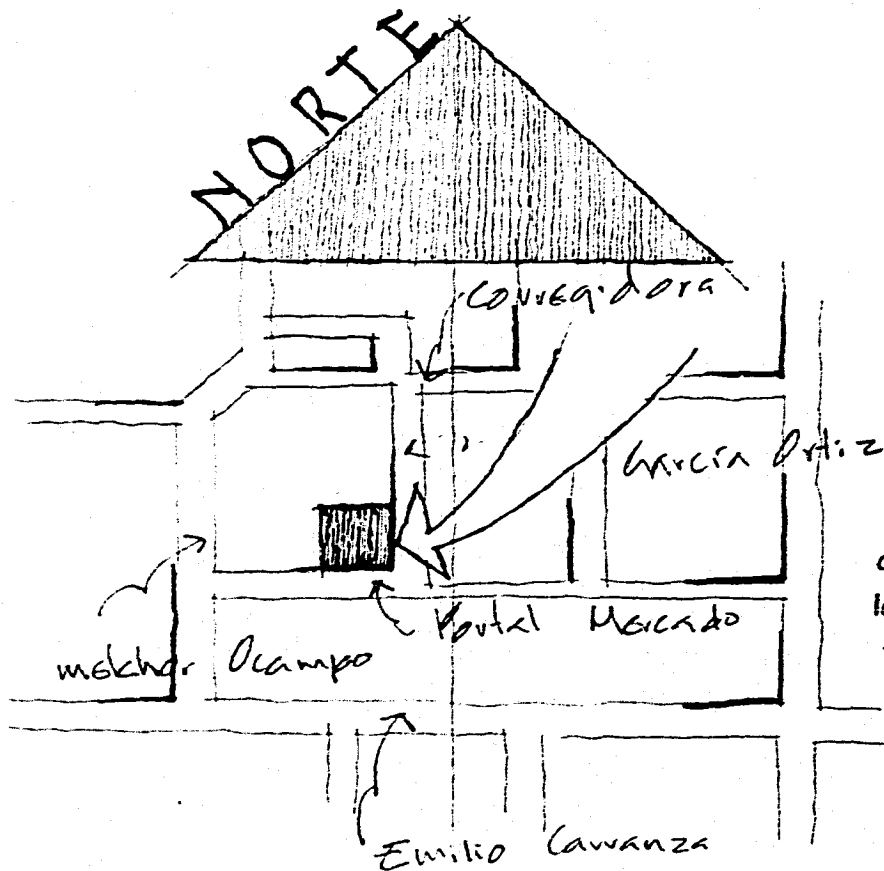 NORTE
Corregidora
García Ortiz
Portal Mercado
melchor Ocampo
Emilio Carranza